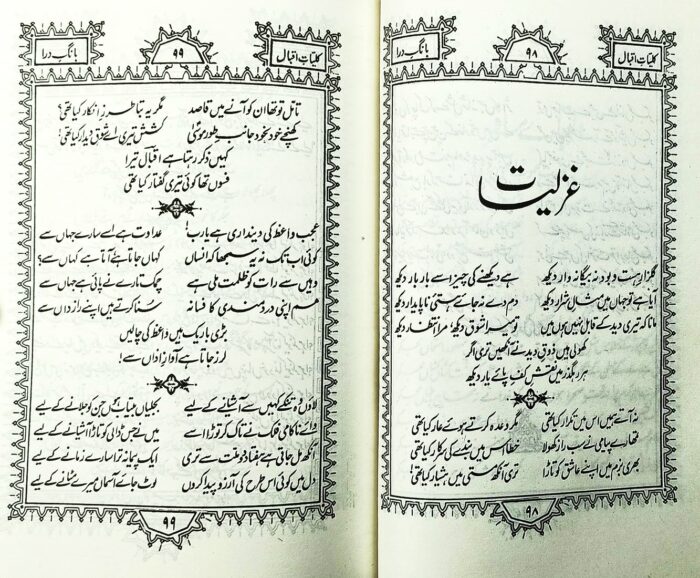 کلیات اقبال
۹۸
بانگ درا
غزلیات
گلزارِ ہست و بود نہ بیگانہ وار دیکھ
ہے دیکھنے کی چیز اسے بار بار دیکھ
آیا ہے تو جہاں میں مثالِ شرار دیکھ
دم دے نہ جائے ہستیِ ناپایدار دیکھ
مانا کہ تیری دید کے قابل نہیں ہوں میں
تو میرا شوق دیکھ، مرا انتظار دیکھ
کھولی ہیں ذوقِ دید نے آنکھیں تری اگر
ہر رہگذر میں نقشِ کفِ پائے یار دیکھ
نہ آتے ہمیں اس میں تکرار کیا تھی
مگر وعدہ کرتے ہوئے عار کیا تھی
تمھارے پیامی نے سب راز کھولا
خطا اس میں بندے کی سرکار کیا تھی
بھری بزم میں اپنے عاشق کو تاڑا
تری آنکھ مستی میں ہشیار کیا تھی!
۹۸
کلیات اقبال
۹۹
بانگ درا
تامل تو تھا ان کو آنے میں قاصد
مگر یہ بتا طرزِ انکار کیا تھی؟
کھنچے خود بخود جانبِ طور موسیٰؑ
کشش تیری اے شوقِ دیدار کیا تھی!
کہیں ذکر رہتا ہے اقبالؔ تیرا
فسوں تھا کوئی تیری گفتار کیا تھی
عجب واعظ کی دینداری ہے یارب!
عداوت ہے اسے سارے جہاں سے
کوئی اب تک نہ یہ سمجھا کہ انساں
کہاں جاتا ہے آتا ہے کہاں سے؟
وہیں سے رات کو ظلمت ملی ہے
چمک تارے نے پائی ہے جہاں سے
ہم اپنی دردمندی کا فسانہ
سنا کرتے ہیں اپنے رازداں سے
بڑی باریک ہیں واعظ کی چالیں
لرز جاتا ہے آوازِ اذاں سے!
لاؤں وہ تنکے کہیں سے آشیانے کے لیے
بجلیاں بیتاب ہوں جن کو جلانے کے لیے
وائے ناکامی فلک نے تاک کر توڑا اسے
میں نے جس ڈالی کو تاڑا آشیانے کے لیے
آنکھ مل جاتی ہے ہفتاد و دو ملت سے تری
ایک پیمانہ ترا سارے زمانے کے لیے
دل میں کوئی اس طرح کی آرزو پیدا کروں
لوٹ جائے آسماں میرے مٹانے کے لیے
۹۹